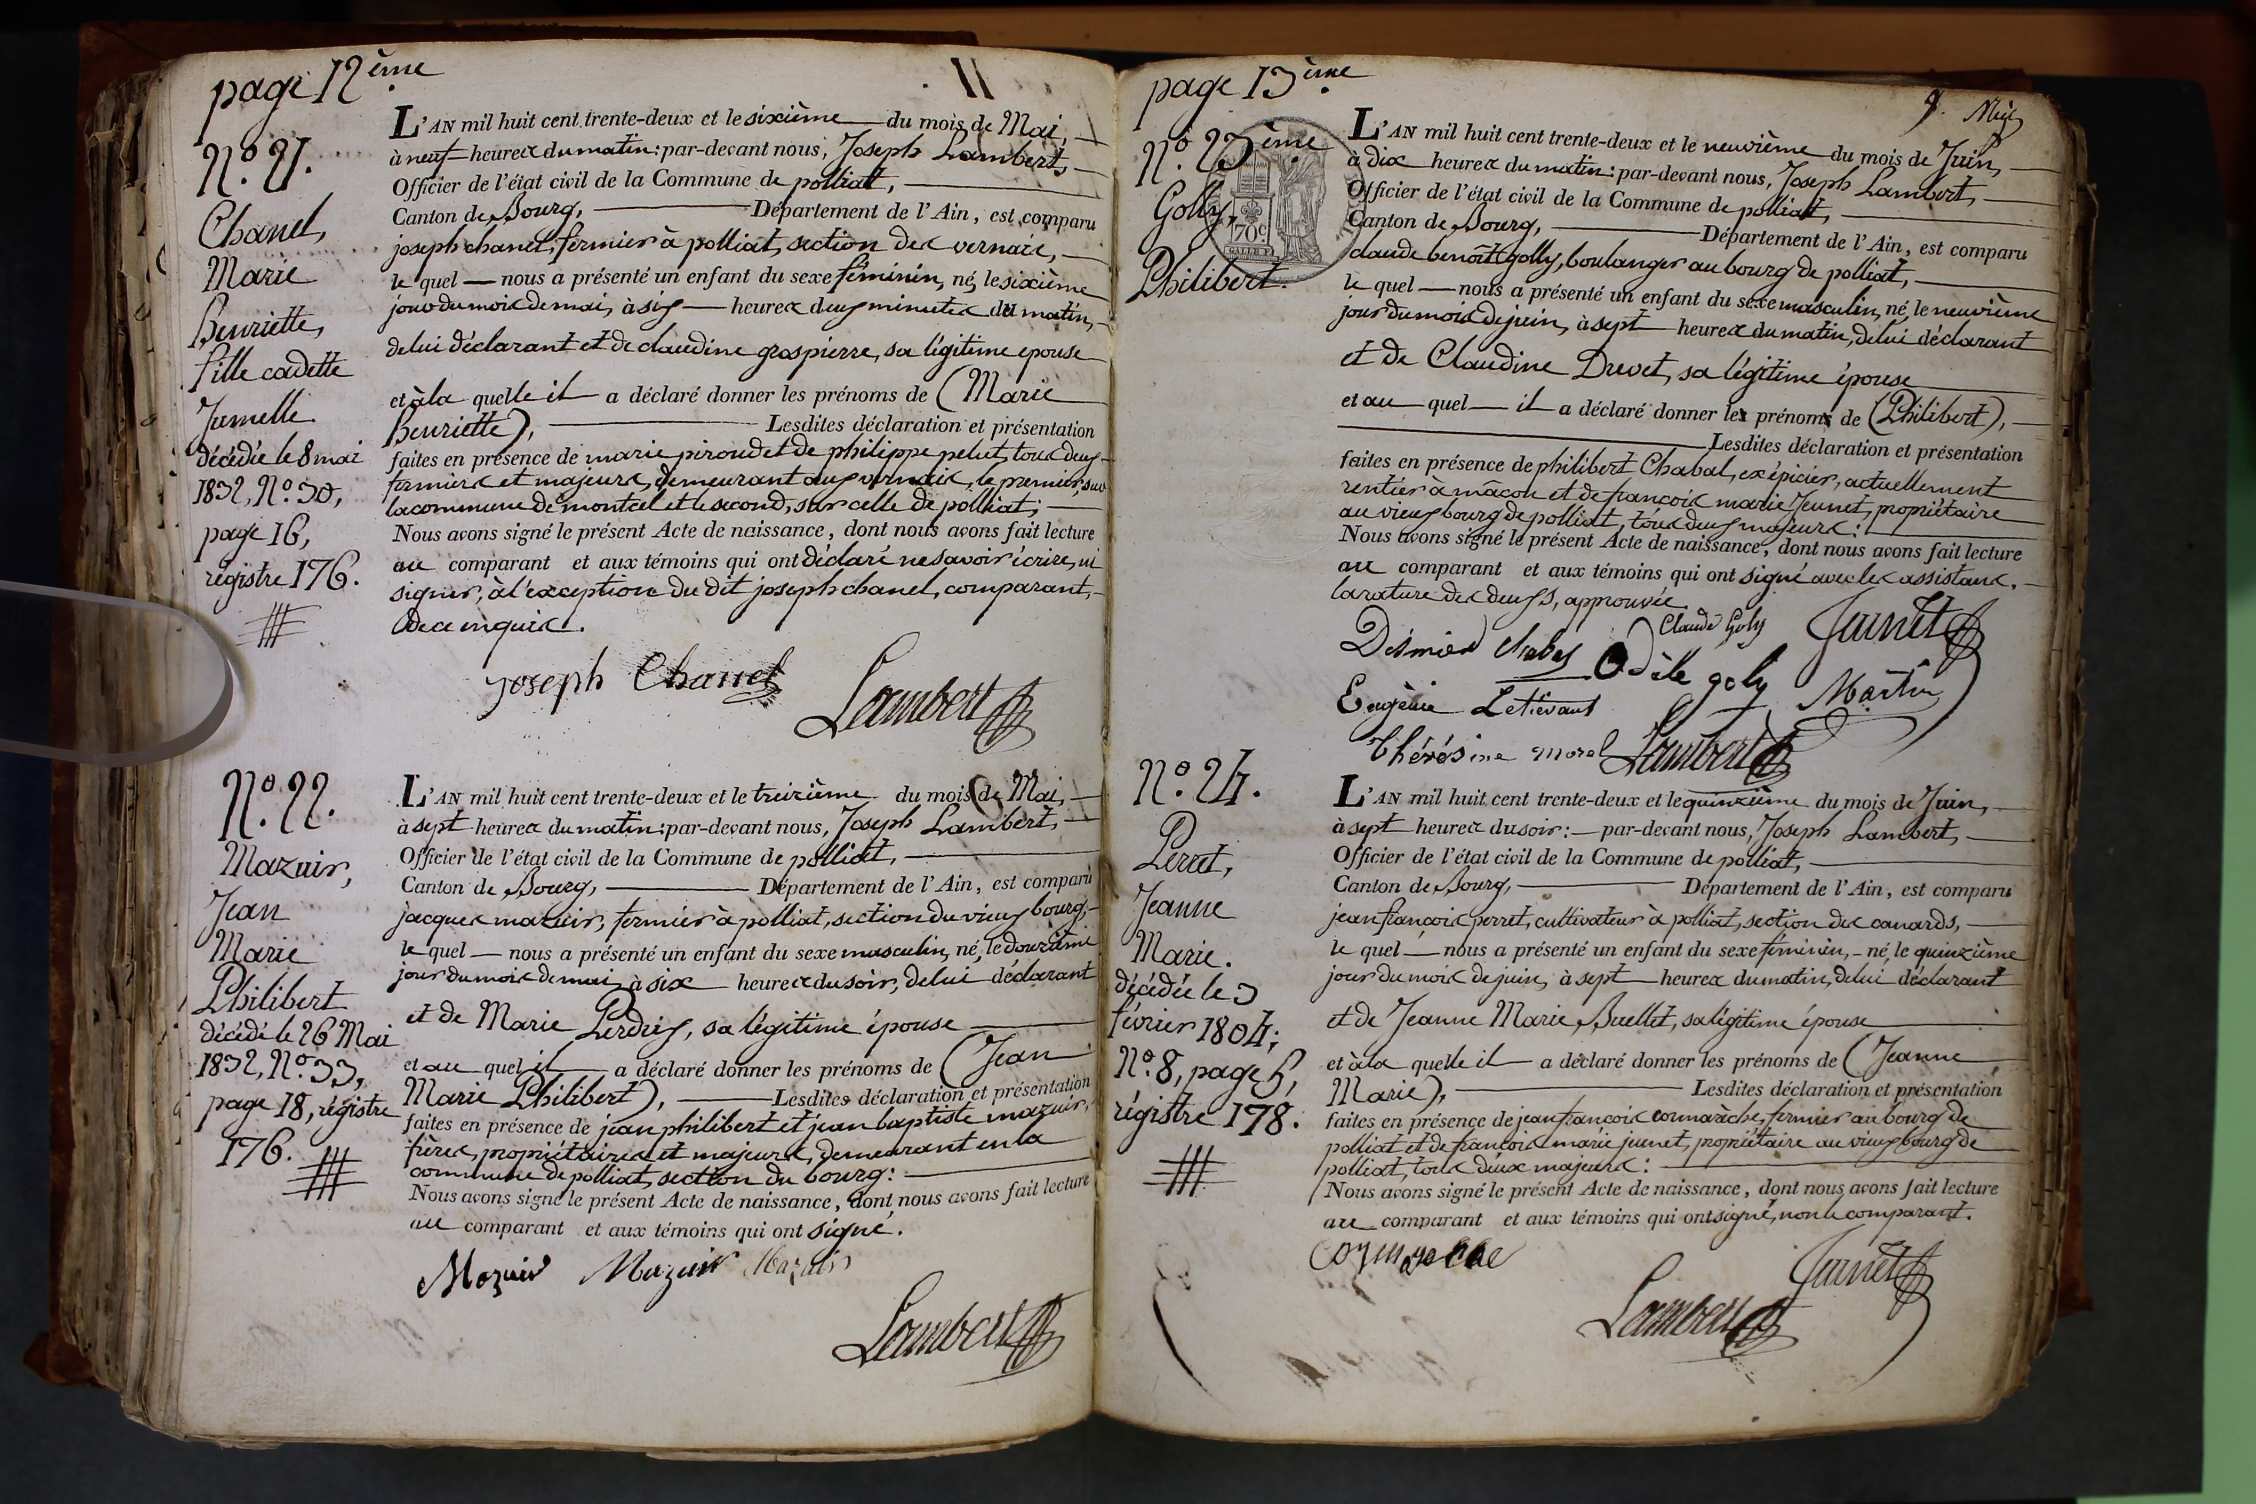 page 12ème
11
N.º 21.
Chanel,
Marie
henriette,
fille cadette
Jumelle
décédée le 8 mai
1832, N.º 30,
page 16,
registre 176.
L'AN mil huit cent trente-deux et le sixième du mois de Mai,
à neuf heures du matin: par-devant nous, Joseph Lambert,
Officier de l'état civil de la Commune de polliat,
Canton de Bourg, Département de l'Ain, est comparu
joseph chanel, fermier à polliat, section des vernais,
le quel nous a présenté un enfant du sexe féminin, né, le sixième
jour du mois de mai, à six heures deux minutes du matin,
de lui déclarant et de claudine grospierre, sa légitime épouse
et à la quelle il a déclaré donner les prénoms de (Marie
henriette), Lesdites déclaration et présentation
faites en présence de marie piroud et de philippe pelut, tous deux
fermiers et majeurs, demeurant aux vernais, le premier, sur
la commune de montcel et le second, sur celle de polliat;
Nous avons signé le présent Acte de naissance, dont nous avons fait lecture
au comparant et aux témoins qui ont déclaré ne savoir écrire, ni
signer, à l'exception du dit joseph chanel, comparant,
de ce enquis.
joseph Chanel
Lambert
N.º 22.
Mazuir,
Jean
Marie
Philibert
décédé le 26 Mai
1832, N.º 33,
page 18, régistre
176.
L'AN mil huit cent trente-deux et le treizième du mois de Mai,
à sept heures du matin: par-devant nous, Joseph Lambert,
Officier de l'état civil de la Commune de polliat,
Canton de Bourg, Département de l'Ain, est comparu
jacques mazuir, fermier à polliat, section du vieux bourg,
le quel nous a présenté un enfant du sexe masculin, né, le douzième
jour du mois de mai, à six heures du soir, de lui déclarant
et de Marie Perdrix, sa légitime épouse
et au quel il a déclaré donner les prénoms de (Jean
Marie Philibert), Lesdites déclaration et présentation
faites en présence de jean philibert et jean baptiste mazuir,
frères, propriétaires et majeurs, demeurant en la
commune de polliat, section du bourg:
Nous avons signé le présent Acte de naissance, dont nous avons fait lecture
au comparant et aux témoins qui ont signé.
Mazuir Mazuir Mazuir
Lambert
page 13ème
9.
N.º 23ème
Golly,
Philibert.
70c
L'AN mil huit cent trente-deux et le neuvième du mois de Juin,
à dix heures du matin: par-devant nous, Joseph Lambert,
Officier de l'état civil de la Commune de polliat,
Canton de Bourg, Département de l'Ain, est comparu
claude benoît golly, boulanger au bourg de polliat,
le quel nous a présenté un enfant du sexe masculin, né, le neuvième
jour du mois de juin, à sept heures du matin, de lui déclarant
et de Claudine Drevet, sa légitime épouse
et au quel il a déclaré donner les prénoms de (Philibert),
Lesdites déclaration et présentation
faites en présence de philibert Chabal, ex épicier, actuellement
rentier à mâcon et de françois marie Jeunet, propriétaire
au vieux bourg de polliat, tous deux majeurs:
Nous avons signé le présent Acte de naissance, dont nous avons fait lecture
au comparant et aux témoins qui ont signé avec les assistans.
la rature des deux s, approuvée.
Claude Goly Jeunet
Odile goly Martin
Eugènie Letiévant
Thérésine morel Lambert
N.º 24.
Perret,
Jeanne
Marie.
décédée le 3
février 1804;
N.º 8, page 5,
régistre 178.
L'AN mil huit cent trente-deux et le quinzième du mois de Juin,
à sept heures du soir: par-devant nous, Joseph Lambert,
Officier de l'état civil de la Commune de polliat,
Canton de Bourg, Département de l'Ain, est comparu
jean françois perret, cultivateur à polliat, section des canards,
le quel nous a présenté un enfant du sexe féminin, né, le quinzième
jour du mois de juin, à sept heures du matin, de lui déclarant
et de Jeanne Marie Buellet, sa légitime épouse
et à la quelle il a déclaré donner les prénoms de (Jeanne
Marie), Lesdites déclaration et présentation
faites en présence de jean françois cormarèche, fermier au bourg de
polliat et de françois marie jeunet, propriétaire au vieux bourg de
polliat, tous deux majeurs:
Nous avons signé le présent Acte de naissance, dont nous avons fait lecture
au comparant et aux témoins qui ont signé, non le comparant.
Cormareche
Jeunet
Lambert